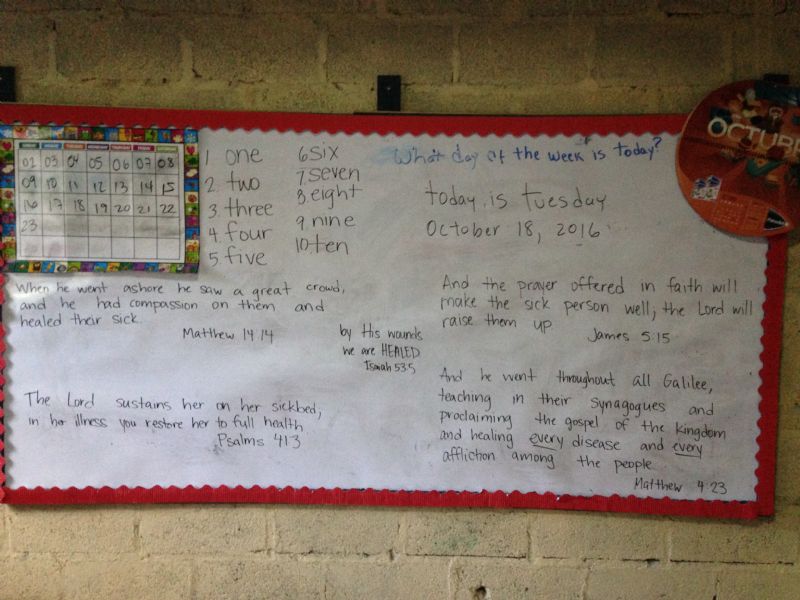 SUNDAY MONDAY TUESDAY WEDNESDAY THURSDAY FRIDAY SATURDAY
02 03 04 05 06 07 08
09 10 11 12 13 14 15
16 17 18 19 20 21 22
23
1 one
2 two
3. three
4. four
5. five
6 six
7. seven
8. eight
9. nine
10. ten
What day of the week is today?
today is tuesday
October 18, 2016
OCTUBRE
When he went ashore he saw a great crowd,
and he had compassion on them and
healed their sick.
Matthew 14 14
by His wounds
we are HEALED
Isaiah 53:5
The Lord sustains her on her sickbed,
in her illness you restore her to full health
Psalms 41:3
And the prayer offered in faith will
make the sick person well; the Lord will
raise them up
James 5:15
And he went throughout all Galilee,
teaching in their synagogues and
proclaiming the gospel of the kingdom
and healing every disease and every
affliction among the people
Matthew 4:23